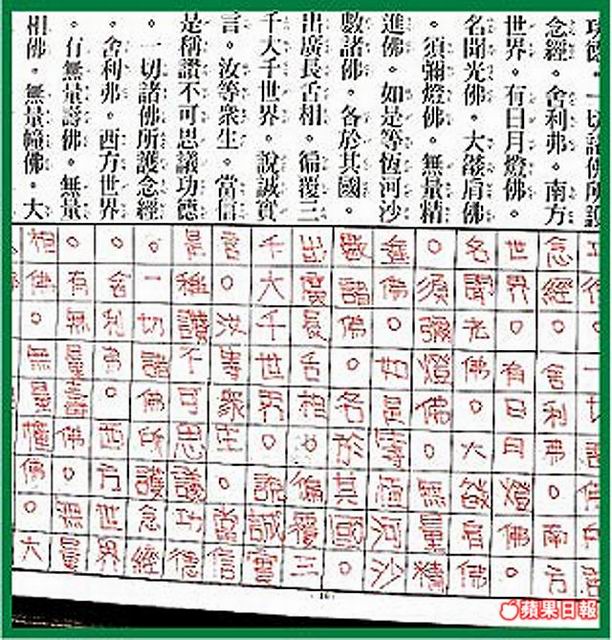 功德。一切諸佛所護
念經。舍利弗。南方
世界。有日月燈佛。
名聞光佛。大燄肩佛
。須彌燈佛。無量精
進佛。如是等恆河沙
數諸佛。各於其國。
出廣長舌相。徧覆三
千大千世界。說誠實
言。汝等眾生。當信
是稱讚不可思議功德
。一切諸佛所護念經
。舍利弗。西方世界
。有無量壽佛。無量
相佛。無量幢佛。大
念經。舍利弗。南方
世界。有日月燈佛。
名聞光佛。大燄肩佛
。須彌燈佛。無量精
進佛。如是等恆河沙
數諸佛。各於其國。
出廣長舌相。徧覆三
千大千世界。說誠實
言。汝等眾生。當信
是稱讚不可思議功德
。一切諸佛所護念經
。舍利弗。西方世界
。有無量壽佛。無量
相佛。無量幢佛。大
蘋果日報